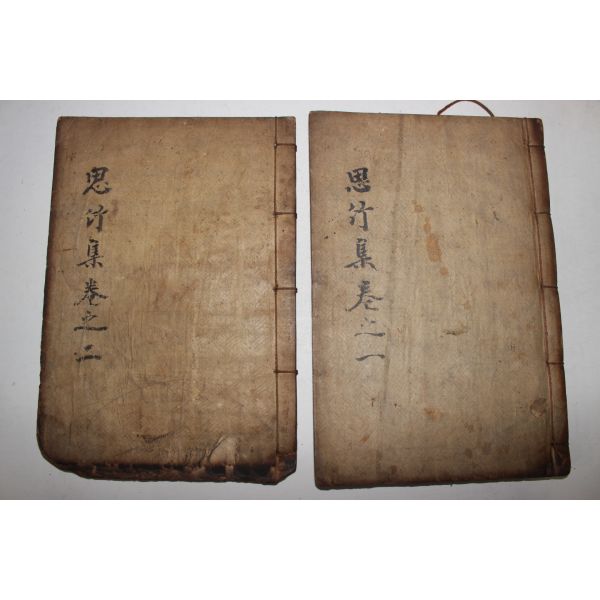 思竹集卷之一
思竹集卷之二